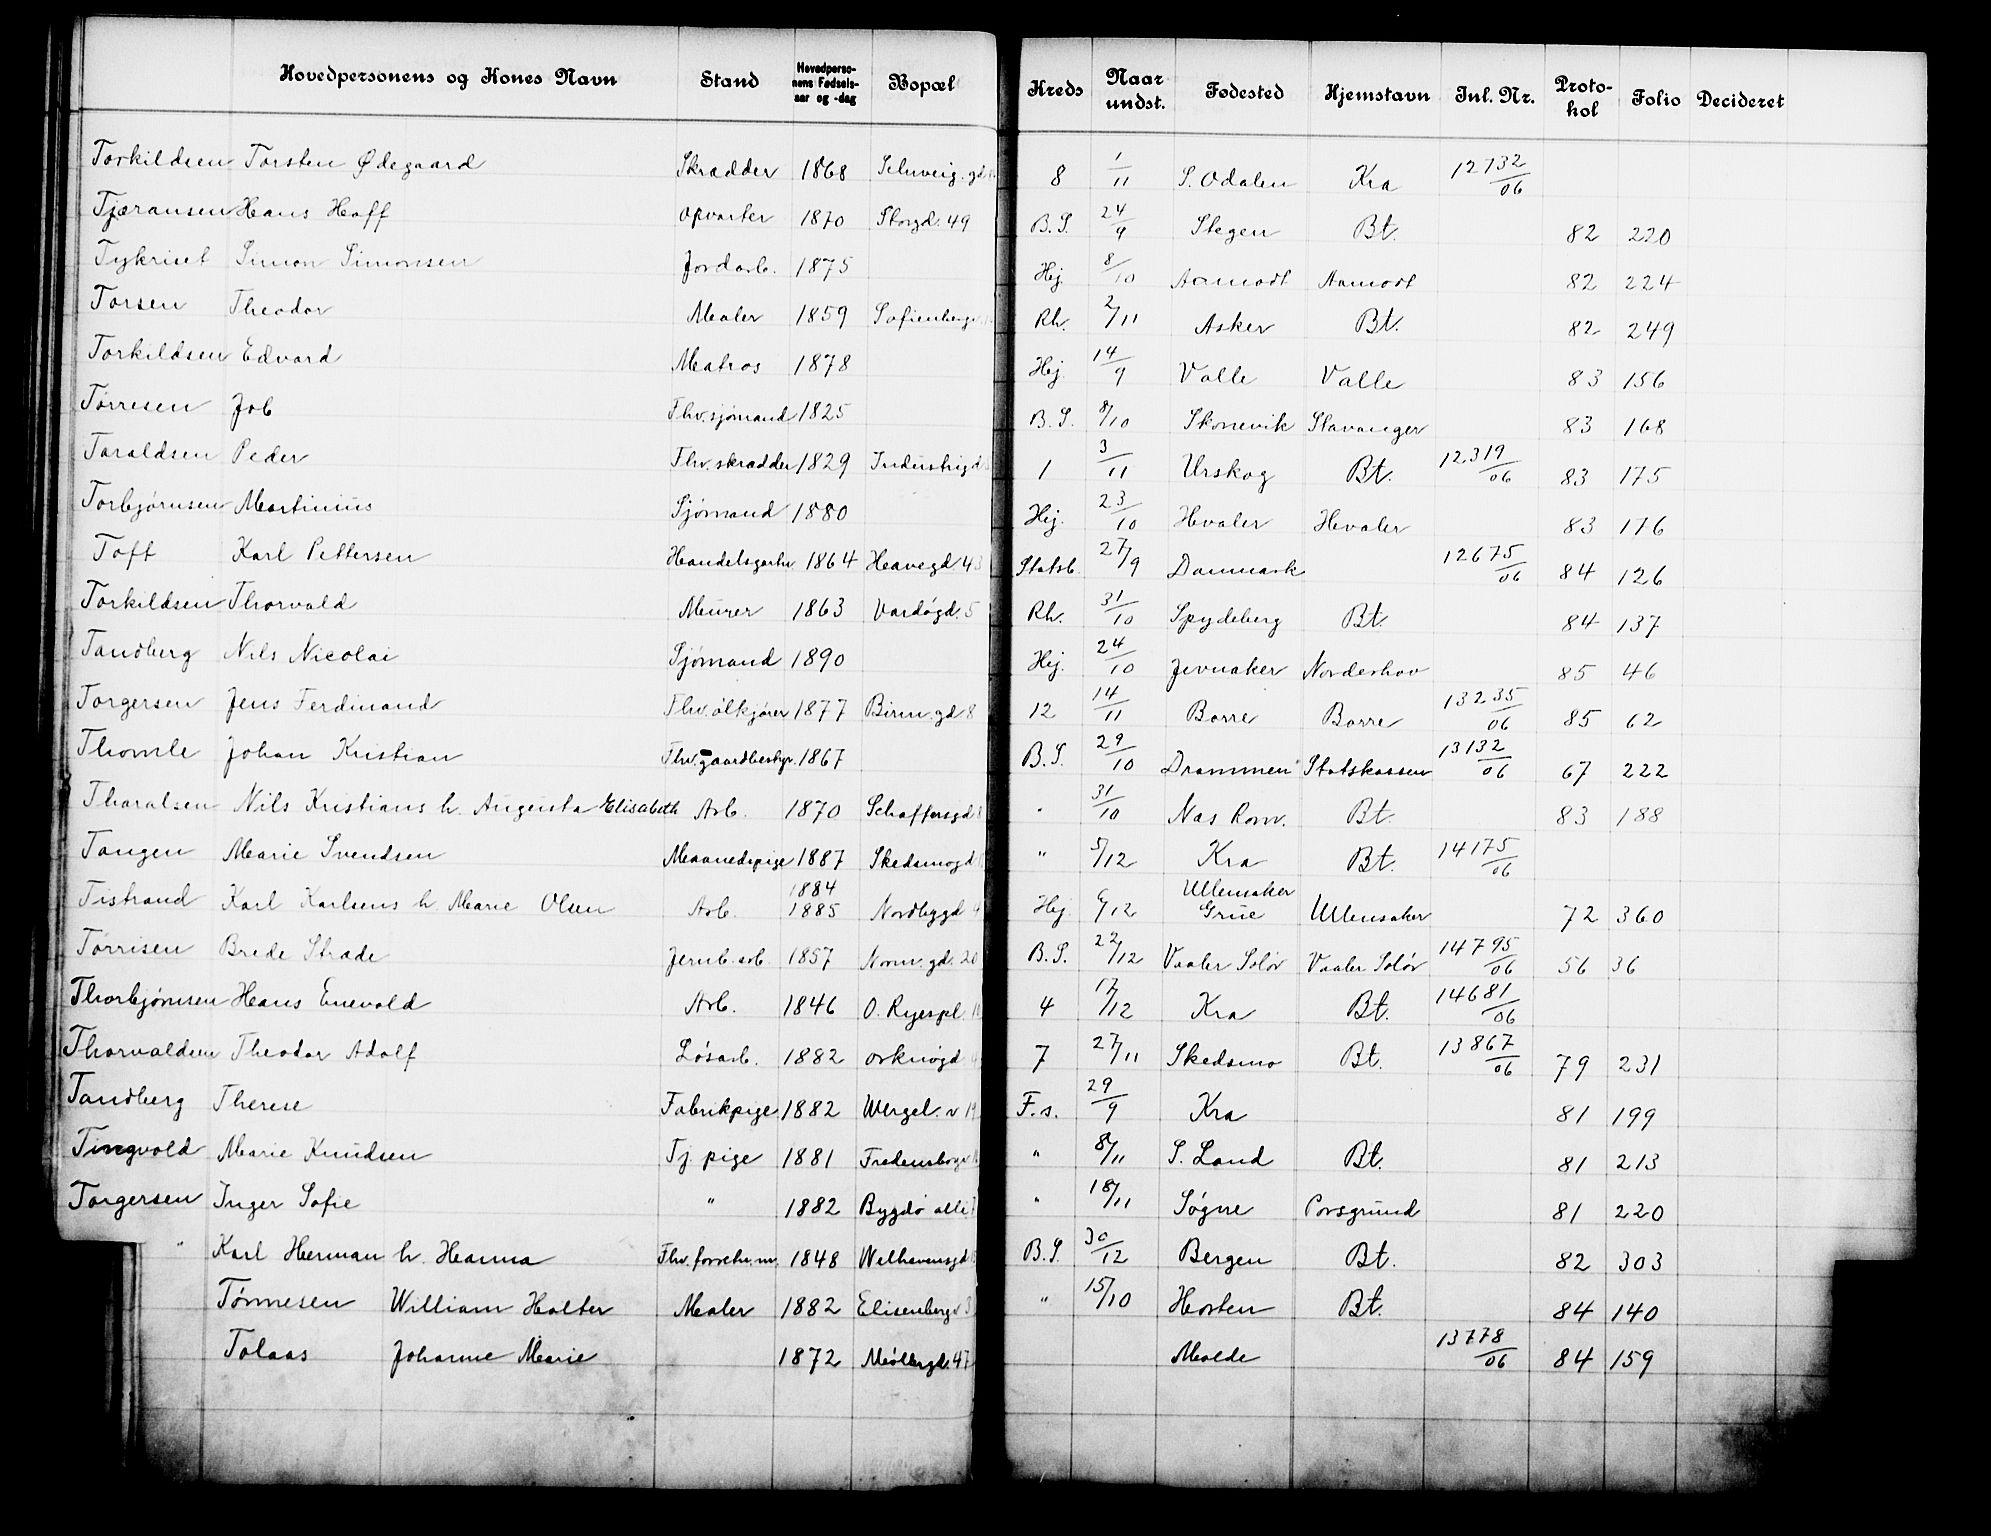 Hovedpersonens og Kones Navn Stand Hovedpersonens Fødselsaar og -dag Bopæl Kreds Naar undst. Fødested Hjemstavn Inl. Nr. Protokol Folio Decideret
Torkildsen Torsten Ødegaard Skrædder 1868 8 1/11 S. Odalen Kra 12732/06
Tjæransen Hans Hoff Opvarter 1870 Storgd. 49 B.S. 24/9 Stegen Bt. 82 220
Tykriset Simon Simonsen Jordarb. 1875 Hej. 8/10 Aamodt Aamodt 82 224
Torsen Theodor Maler 1859 Sofienbergv. Rh. 2/11 Asker Bt. 82 249
Torkildsen Edvard Matros 1878 Hej. 14/9 Valle Valle 83 156
Tørresen Job Fhv. sjømand 1825 B.S. 8/10 Skonevik Stavanger 83 168
Taraldsen Peder Fhv. skrædder 1829 Industrigd 1 3/11 Urskog Bt. 12319/06 83 175
Torbjørnsen Martinius Sjømand 1880 Hej. 23/10 Hvaler Hvaler 83 176
Toft Karl Pettersen Handelsgartn 1864 Havegd. 43 Statsb. 27/9 Danmark 12675/06 84 126
Torkildsen Thorvald Murer 1863 Vardøgd. 5 Rh. 31/10 Spydeberg Bt. 84 137
Tandberg Nils Nicolai Sjømand 1890 Hej. 24/10 Jevnaker Norderhov 85 46
Torgersen Jens Ferdinand Fhv. ølkjører 1877 Birm. gd 8 12 14/11 Borre Borre 13235/06 85 62
Thomle Johan Kristian Fhv. gaardbestyr. 1867 B.S. 29/10 Drammen Statskassen 13132/06 67 222
Thoralsen Nils Kristians h. Augusta Elisabeth Arb. 1870 Schaffersgd " 31/10 Nas Rom. Bt. 83 188
Tangen Marie Svendsen Maanedspige 1887 Skedsmogd " 5/12 Kra Bt. 14175/06
Tistrand Karl Karlsens h. Marie Olsen Arb. 1884 1885 Nordbygd 4 Hej. 6/12 Ullensaker Grue Ullensaker 72 360
Tørrisen Brede Stræde Jernb. arb. 1857 Norm. gd. 20 B.S. 22/12 Vaaler Solør Vaaler Solør 14795/06 56 36
Thorbjørnsen Hans Enevold Arb. 1846 O. Ryespl. 4 17/12 Kra Bt. 14681/06
Thorvaldsen Theodor Adolf Løsarb. 1882 Orknøgd 7 27/11 Skedsmo Bt. 13867/06 79 231
Tandberg Therese Fabrikpige 1882 Wergel. v 19 F.s. 29/9 Kra 81 199
Tingvold Marie Knudsen Tj. pige 1881 Fredensborgv " 8/11 S. Land Bt. 81 213
Torgersen Inger Sofie " 1882 Bygdø alle " 18/11 Søgne Porsgrund 81 220
" Karl Herman h. Hanna Fhv. forretn. m. 1848 Welhavensgd B.S. 30/12 Bergen Bt. 82 303
Tønnesen William Halter Maler 1882 Elisenbergv 3 " 15/10 Horten Bt. 84 140
Tolaas Johanne Marie 1872 Møllergd. 47 Molde 13778/06 84 159